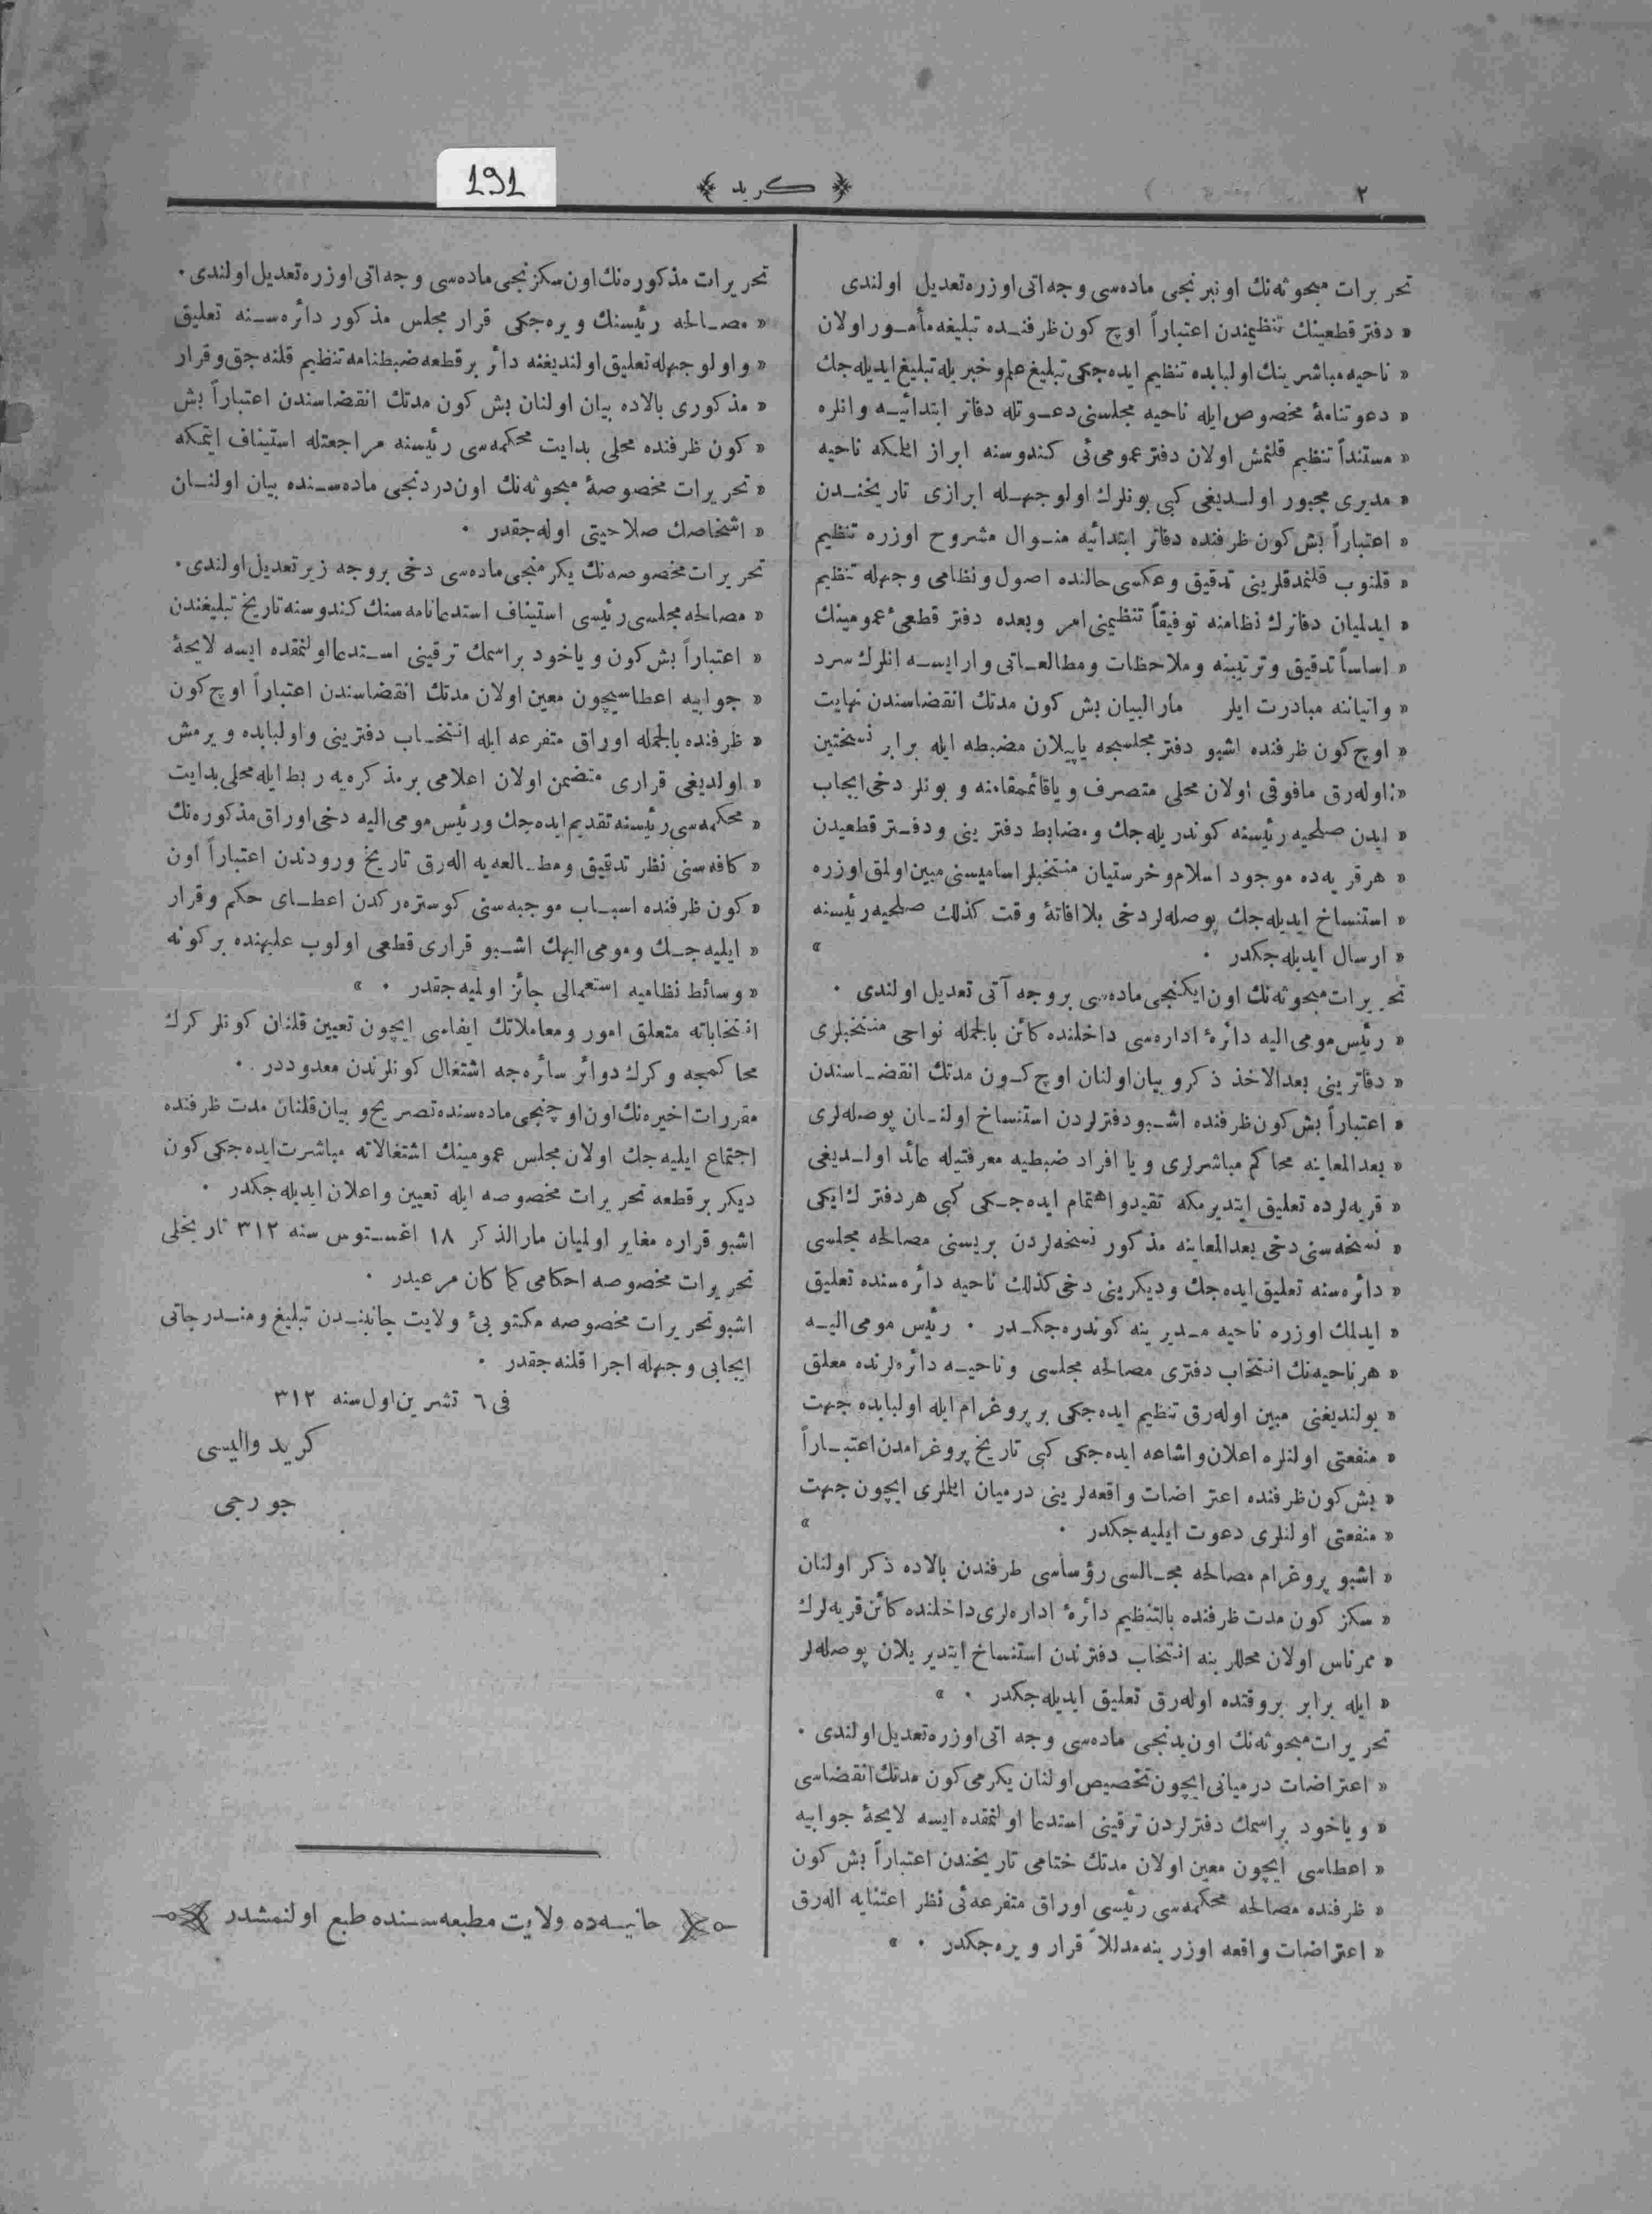 ٢
كريد
191
تحريرات مبحوثه‌نك اونبرنجی ماده‌سی وجه آتی اوزره تعدیل اولندی
« دفتر قطعینك تنظیمندن اعتباراً اوچ كون ظرفنده تبلیغه مأمور اولان
« ناحیه مباشرینك اولبابده تنظیم ایده‌جكی تبلیغ علم و خبریله تبلیغ ایدیله‌جك
« دعوتنامهٔ مخصوص ایله ناحیه مجلسنی دعوتله دفاتر ابتدائیه و انلره
« مستنداً تنظیم قلنمش اولان دفتر عمومی‌ئی كندوسنه ابراز ایلمكه ناحیه
« مدیری مجبور اولدیغی كبی بونلرك اولوجهله ابرازی تاریخندن
« اعتباراً بش كون ظرفنده دفاتر ابتدائیه منوال مشروح اوزره تنظیم
« قلنوب قلنمدقلرینی تدقیق و عكسی حالنده اصول و نظامی وجهله تنظیم
« ایدلمیان دفاترك نظامنه توفیقاً تنظیمنی امر وبعده دفتر قطعیٔ عمومینك
« اساساً تدقیق و ترتیبنه و ملاحظات و مطالعاتی وار ایسه انلرك سرد
« و اتیاننه مبادرت ایلر مارالبیان بش كون مدتك انقضاسندن نهایت
« اوچ كون ظرفنده اشبو دفتر مجلسجه یاپیلان مضبطه ایله برابر نسختین
« اوله‌رق مافوقی اولان محلی متصرف ویا قائممقامنه و بونلر دخی ایجاب
« ایدن صلحیه رئیسنه كوندریله‌جك و مضابط دفترینی و دفتر قطعیدن
« هر قریه‌ده موجود اسلام و خرستیان منتخبلر اسامیسنی مبین اولمق اوزره
« استنساخ ایدیله‌جك پوصله‌لر دخی بلا افاتهٔ وقت كذلك صلحیه رئیسنه
« ارسال ایدیله‌جكدر . »
تحریرات مبحوثه‌نك اون ایكنجی ماده‌سی بروجه آتی تعدیل اولندی .
« رئیس مومی الیه دائرهٔ اداره‌سی داخلنده كائن بالجمله نواحی منتخبلری
« دفاترینی بعدالاخذ ذكر و بیان اولنان اوچ كون مدتك انقضاسندن
« اعتباراً بش كون ظرفنده اشبو دفترلردن استنساخ اولنان پوصله‌لری
« بعدالمعاینه محاكم مباشرلری ویا افراد ضبطیه معرفتیله عائد اولدیغی
« قریه‌لرده تعلیق ایتدیرمكه تقید و اهتمام ایده‌جكی كبی هر دفترك ایكی
« نسخه‌سنی دخی بعدالمعاینه مذكور نسخه‌لردن بریسنی مصالحه مجلسی
« دائره‌سنه تعلیق ایده‌جك و دیكرینی دخی كذلك ناحیه دائره‌سنده تعلیق
« ایدلمك اوزره ناحیه مدیرینه كوندره‌جكدر . رئیس مومی الیه
« هر ناحیه‌نك انتخاب دفتری مصالحه مجلسی و ناحیه دائره‌لرنده معلق
« بولندیغنی مبین اوله‌رق تنظیم ایده‌جكی بر پروغرام ایله اولبابده جهت
« منفعتی اولنلره اعلان و اشاعه ایده‌جكی كبی تاریخ پروغرامدن اعتباراً
« بش كون ظرفنده اعتراضات واقعه‌لرینی درمیان ایلملری ایچون جهت
« منفعتی اولنلری دعوت ایلیه‌جكدر . »
« اشبو پروغرام مصالحه مجالسی رؤساسی طرفندن بالاده ذكر اولنان
« سكز كون مدت ظرفنده بالتنظیم دائرهٔ اداره‌لری داخلنده كائن قریه‌لرك
« ممرناس اولان محللرینه انتخاب دفترندن استنساخ ایتدیریلان پوصله‌لر
« ایله برابر بروقتده اوله‌رق تعلیق ایدیله‌جكدر . »
تحریرات مبحوثه‌نك اون یدنجی ماده‌سی وجه آتی اوزره تعدیل اولندی .
« اعتراضات درمیانی ایچون تخصیص اولنان یكرمی كون مدتك انقضاسی
« ویاخود براسمك دفترلردن ترقینی استدعا اولنمقده ایسه لایحهٔ جوابیه
« اعطاسی ایچون معین اولان مدتك ختامی تاریخندن اعتباراً بش كون
« ظرفنده مصالحه محكمه‌سی رئیسی اوراق متفرعه‌ئی نظر اعتنایه اله‌رق
« اعتراضات واقعه اوزرینه مدللاً قرار ویره‌جكدر . »
تحریرات مذكوره‌نك اون سكزنجی ماده‌سی وجه آتی اوزره تعدیل اولندی .
« مصالحه رئیسنك ویره‌جكی قرار مجلس مذكور دائره‌سنه تعلیق
« و اولوجهله تعلیق اولندیغنه دائر بر قطعه ضبطنامه تنظیم قلنه‌جق و قرار
« مذكوری بالاده بیان اولنان بش كون مدتك انقضاسندن اعتباراً بش
« كون ظرفنده محلی بدایت محكمه‌سی رئیسنه مراجعتله استیناف ایتمكه
« تحریرات مخصوصهٔ مبحوثه‌نك اون دردنجی ماده‌سنده بیان اولنان
« اشخاصك صلاحیتی اوله‌جقدر .
تحریرات مخصوصه‌نك یكرمنجی ماده‌سی دخی بروجه زیر تعدیل اولندی .
« مصالحه مجلسی رئیسی استیناف استدعانامه‌سنك كندوسنه تاریخ تبلیغندن
« اعتباراً بش كون ویاخود براسمك ترقینی استدعا اولنمقده ایسه لایحهٔ
« جوابیه اعطاسیچون معین اولان مدتك انقضاسندن اعتباراً اوچ كون
« ظرفنده بالجمله اوراق متفرعه ایله انتخاب دفترینی و اولبابده ویرمش
« اولدیغی قراری متضمن اولان اعلامی بر مذكره‌یه ربط ایله محلی بدایت
« محكمه‌سی رئیسنه تقدیم ایده‌جك و رئیس مومی الیه دخی اوراق مذكوره‌نك
« كافه‌سنی نظر تدقیق و مطالعه‌یه اله‌رق تاریخ ورودندن اعتباراً اون
« كون ظرفنده اسباب موجبه‌سنی كوستره‌ركدن اعطای حكم و قرار
« ایلیه‌جك و مومی الیهك اشبو قراری قطعی اولوب علیهنده بر كونه
« وسائط نظامیه استعمالی جائز اولمیه‌جقدر . »
انتخاباته متعلق امور و معاملاتك ایفاسی ایچون تعیین قلنان كونلر كرك
محاكمجه و كرك دوائر سائره‌جه اشتغال كونلرندن معدوددر .
مقررات اخیره‌نك اون اوچنجی ماده‌سنده تصریح و بیان قلنان مدت ظرفنده
اجتماع ایلیه‌جك اولان مجلس عمومینك اشتغالاته مباشرت ایده‌جكی كون
دیكر بر قطعه تحریرات مخصوصه ایله تعیین و اعلان ایدیله‌جكدر .
اشبو قراره مغایر اولمیان مارالذكر ١٨ اغستوس سنه ٣١٢ تاریخلی
تحریرات مخصوصه احكامی كما كان مرعیدر .
اشبو تحریرات مخصوصه مكتوبیٔ ولایت جانبندن تبلیغ و مندرجاتی
ایجابی وجهله اجرا قلنه‌جقدر .
فی ٦ تشرین اول سنه ٣١٢
كرید والیسی
جورجی
حانیه‌ده ولایت مطبعه‌سنده طبع اولنمشدر